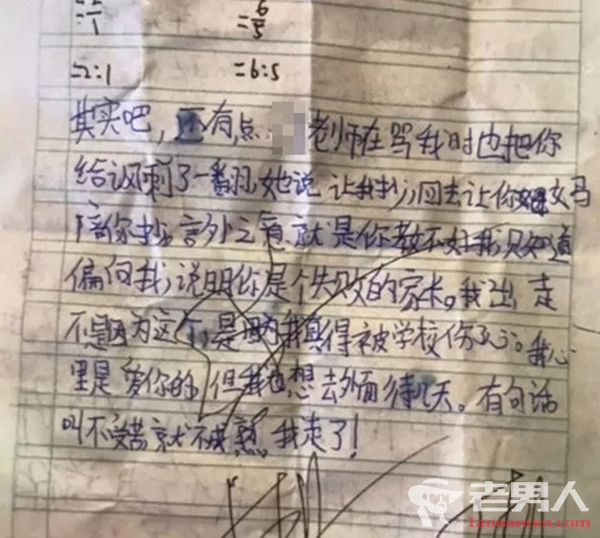 =6/5
=2:1 =6:5
其实吧，还有点 老师在骂我时也把你
给讽刺了一番,她说让我抄,回去让你妈
陪你抄,言外之意就是你教不好我只知道
偏向我,说明你是个失败的家长。我出走
不是因为这个,是因为我真得被学校伤了。我心
里是爱你的,但我也想去外面待几天。有句话
叫不受苦就不成熟,我走了!
老男人